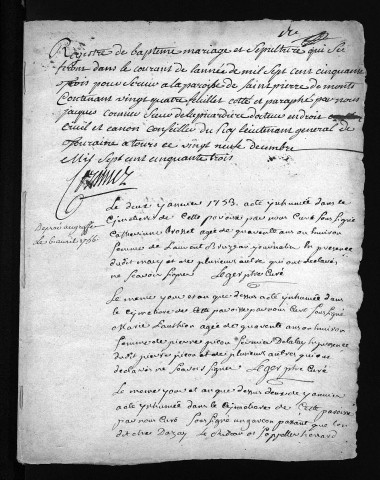 Registre de bapteme mariage et Sepulture qui Se
feront dans le courant de lannée de mil Sept cent cinquante
trois pour Servir a la paroisse de Saint pierre de monts
Contenant vingt quatre feuillets cotté et paraphé par nous
jacques cormier Sieur de docteur en droit
civil et canon conseiller du Roy lieutenant general de
touraine a tours ce vingt neuf decembre
Mil Sept cent cinquante trois
Cormier
Le deux janvier 1753 a eté inhumée dans le
Cimetiere de Cette paroisse par nous Curé Sous Signé
Catherine agée de quarante ans ou environ
femme de Laurent journalier En presence
dudit mary et de plusieurs autres qui ont declaré
ne Scavoir Signer Leger ptre Curé
Deposé au greffe
le 6 avril 1756
Le meme jour et an que dessus a eté inhumée dans
le cymetiere de Cette paroisse par nous Curé Sous Signé
Marie agée de quarante ans ou environ
femme de pierre fermier En presence
dudit pierre et de plusieurs autres qui ont
declaré ne Scavoir Signer Leger ptre Curé
Le meme jour et an que dessus deux de janvier
a eté inhumé dans le Cymetiere de Cette paroisse
par nous Curé Sous Signé un garçon parant que lon
dit etre Le et Sappeller